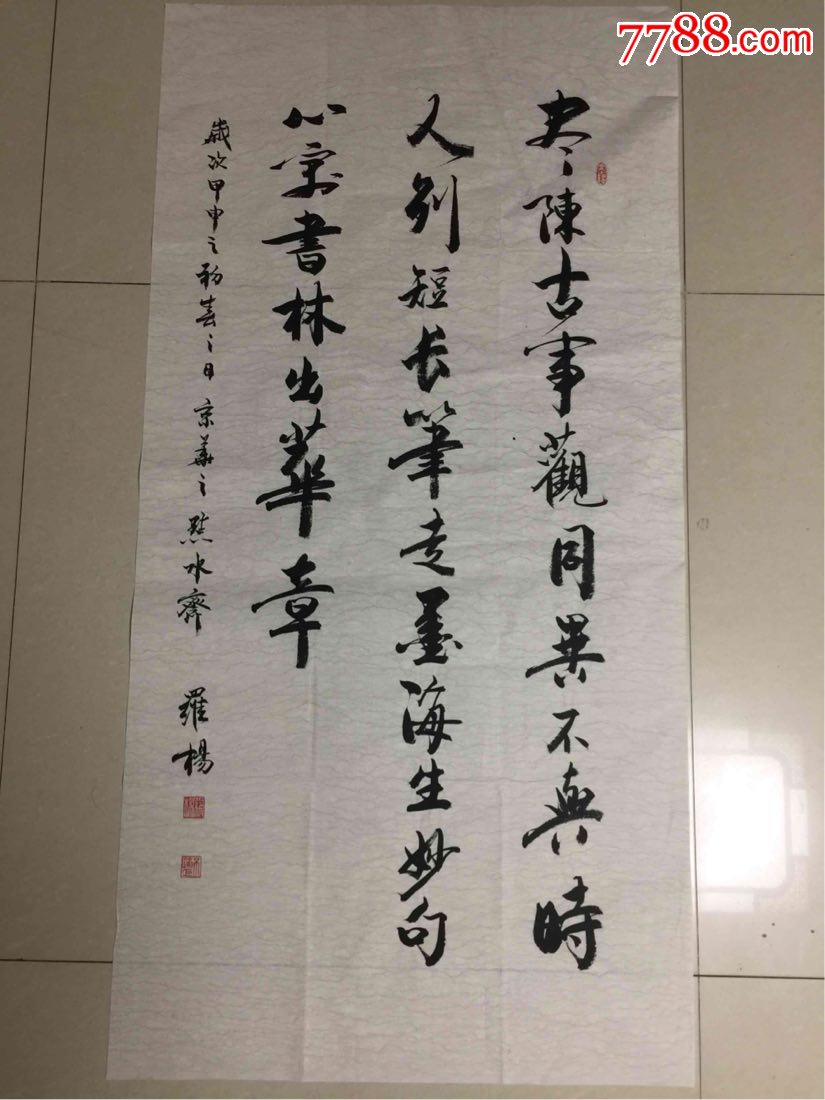 7788.com
尽陳古事觀同異不與時
人别短长筆走墨海生妙句
心寄書林出華章
歲次甲申之初春之日京華之點水齋 羅楊